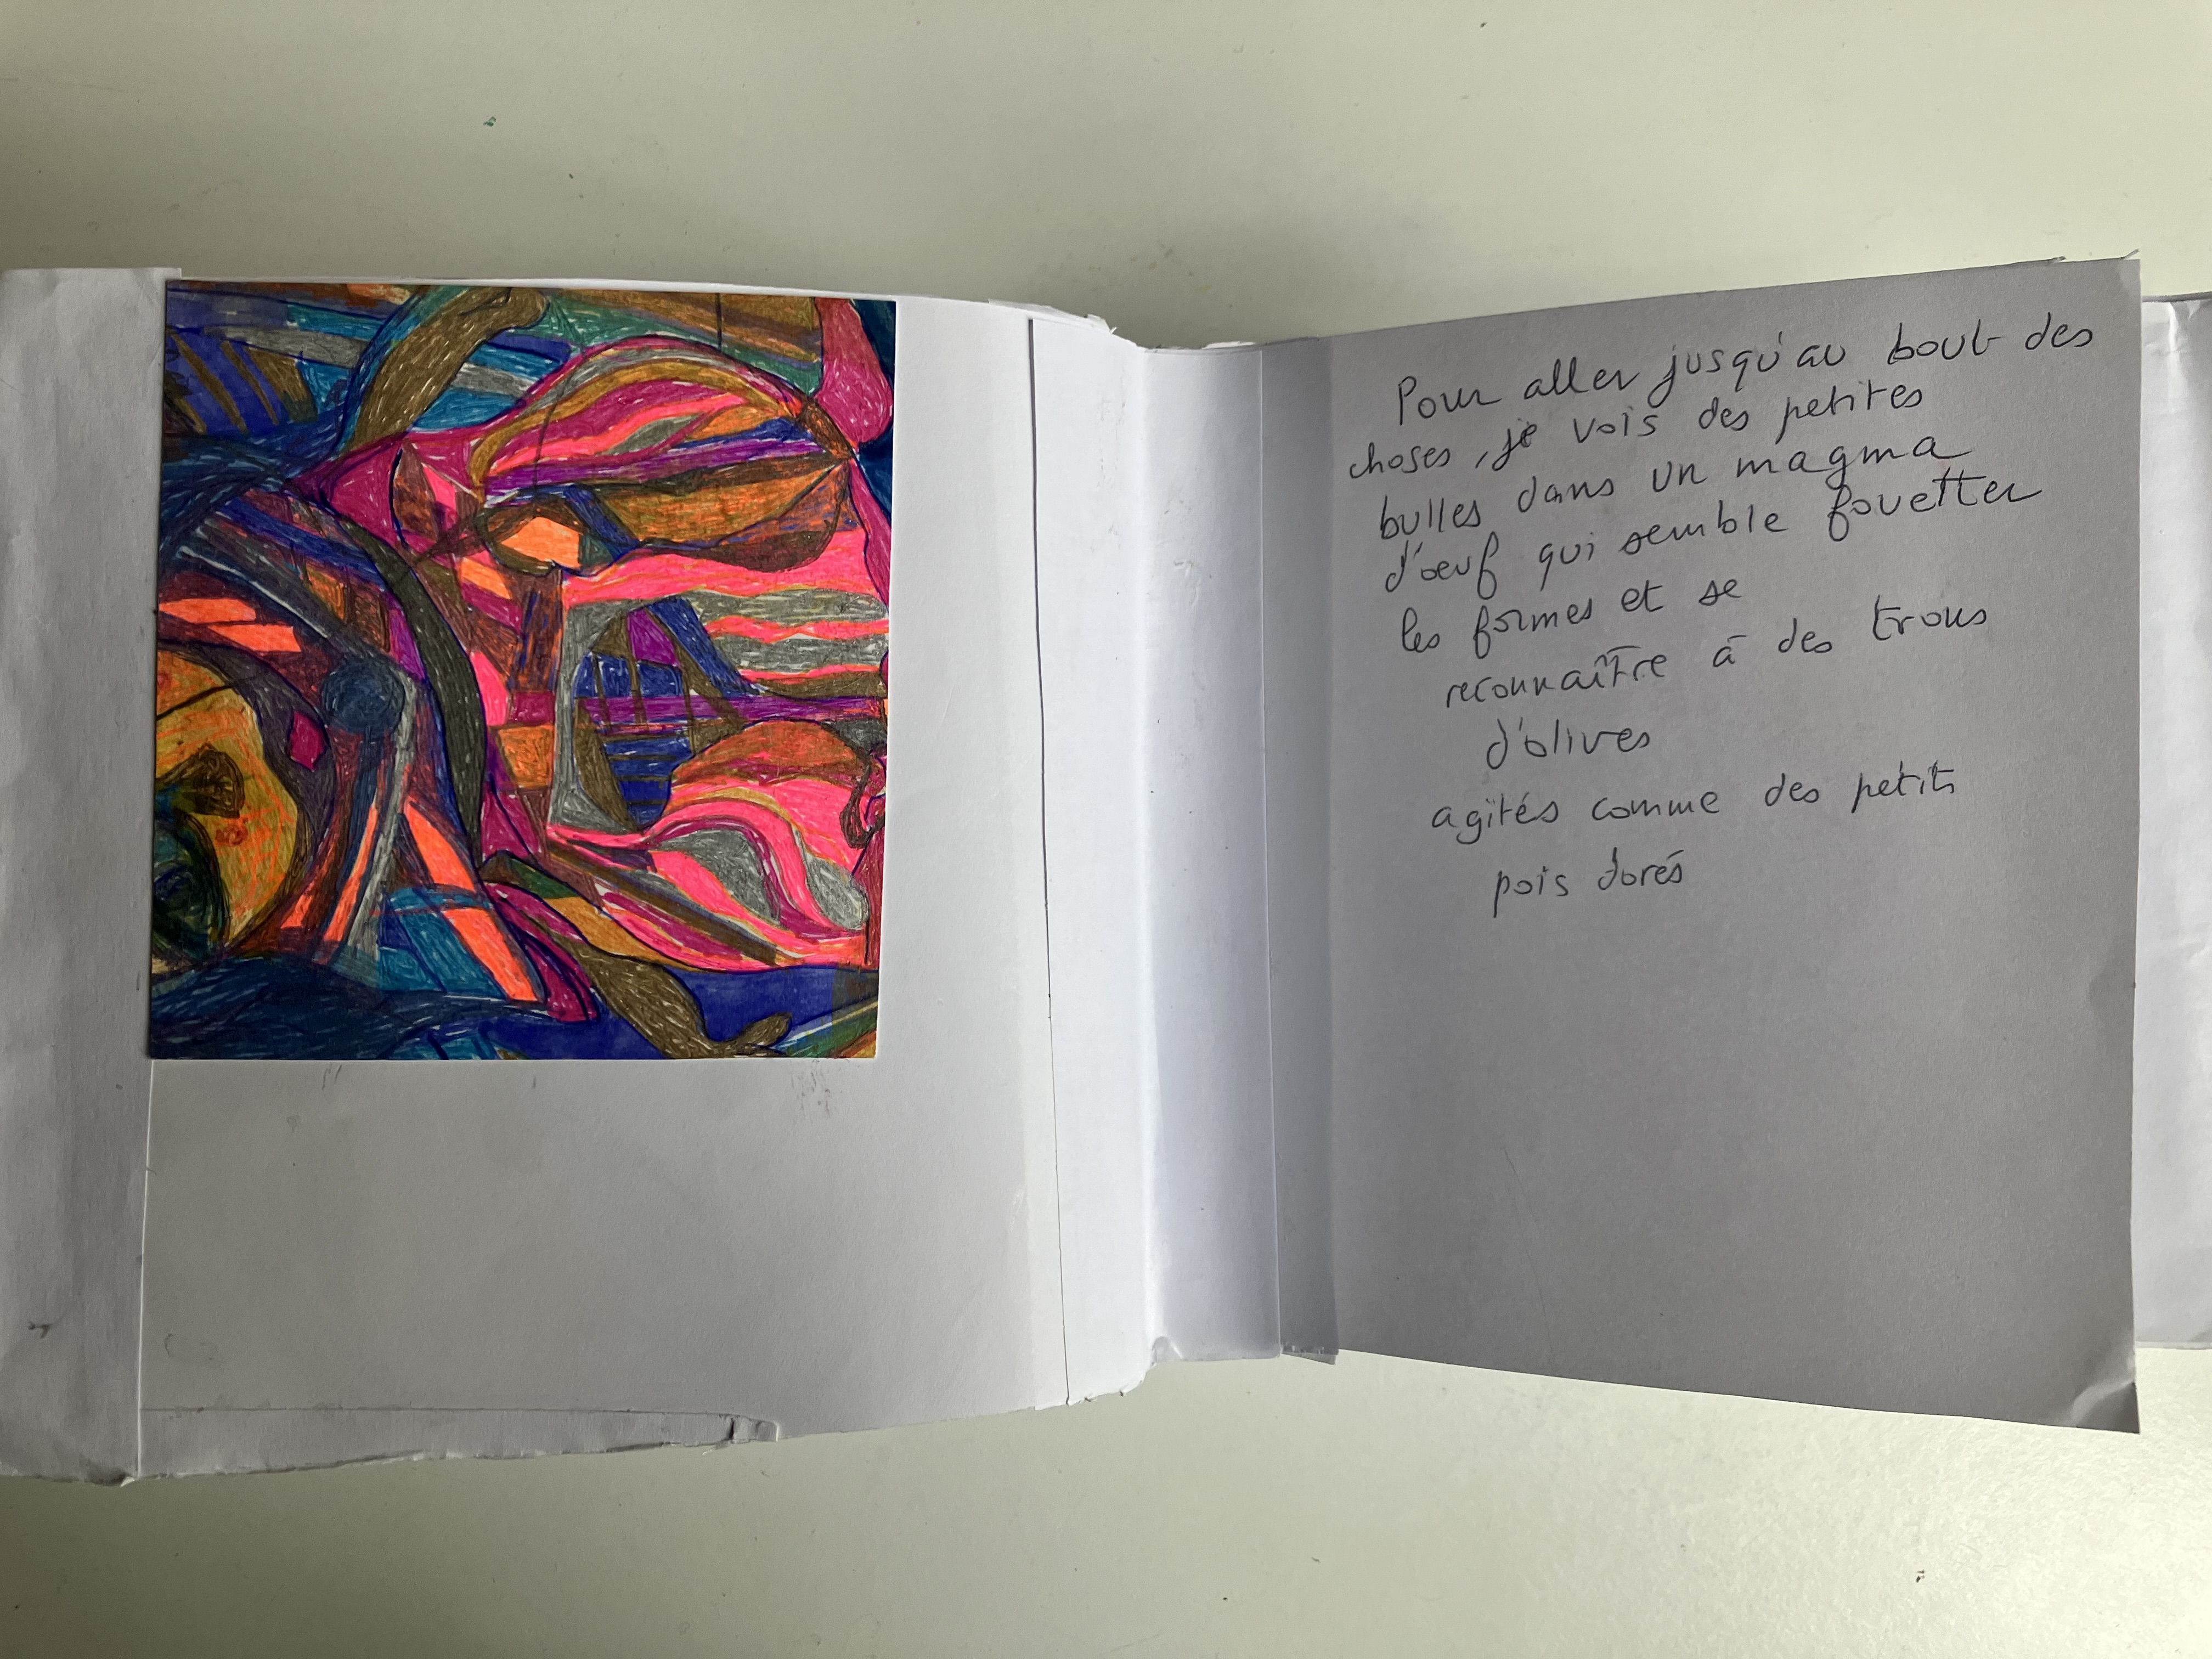 Pour aller jusqu'au bout des
choses, je vois des petites
bulles dans un magma
d'œuf qui semble fouetter
les formes et se
reconnaître à des trous
d'olives
agités comme des petits
pois dorés